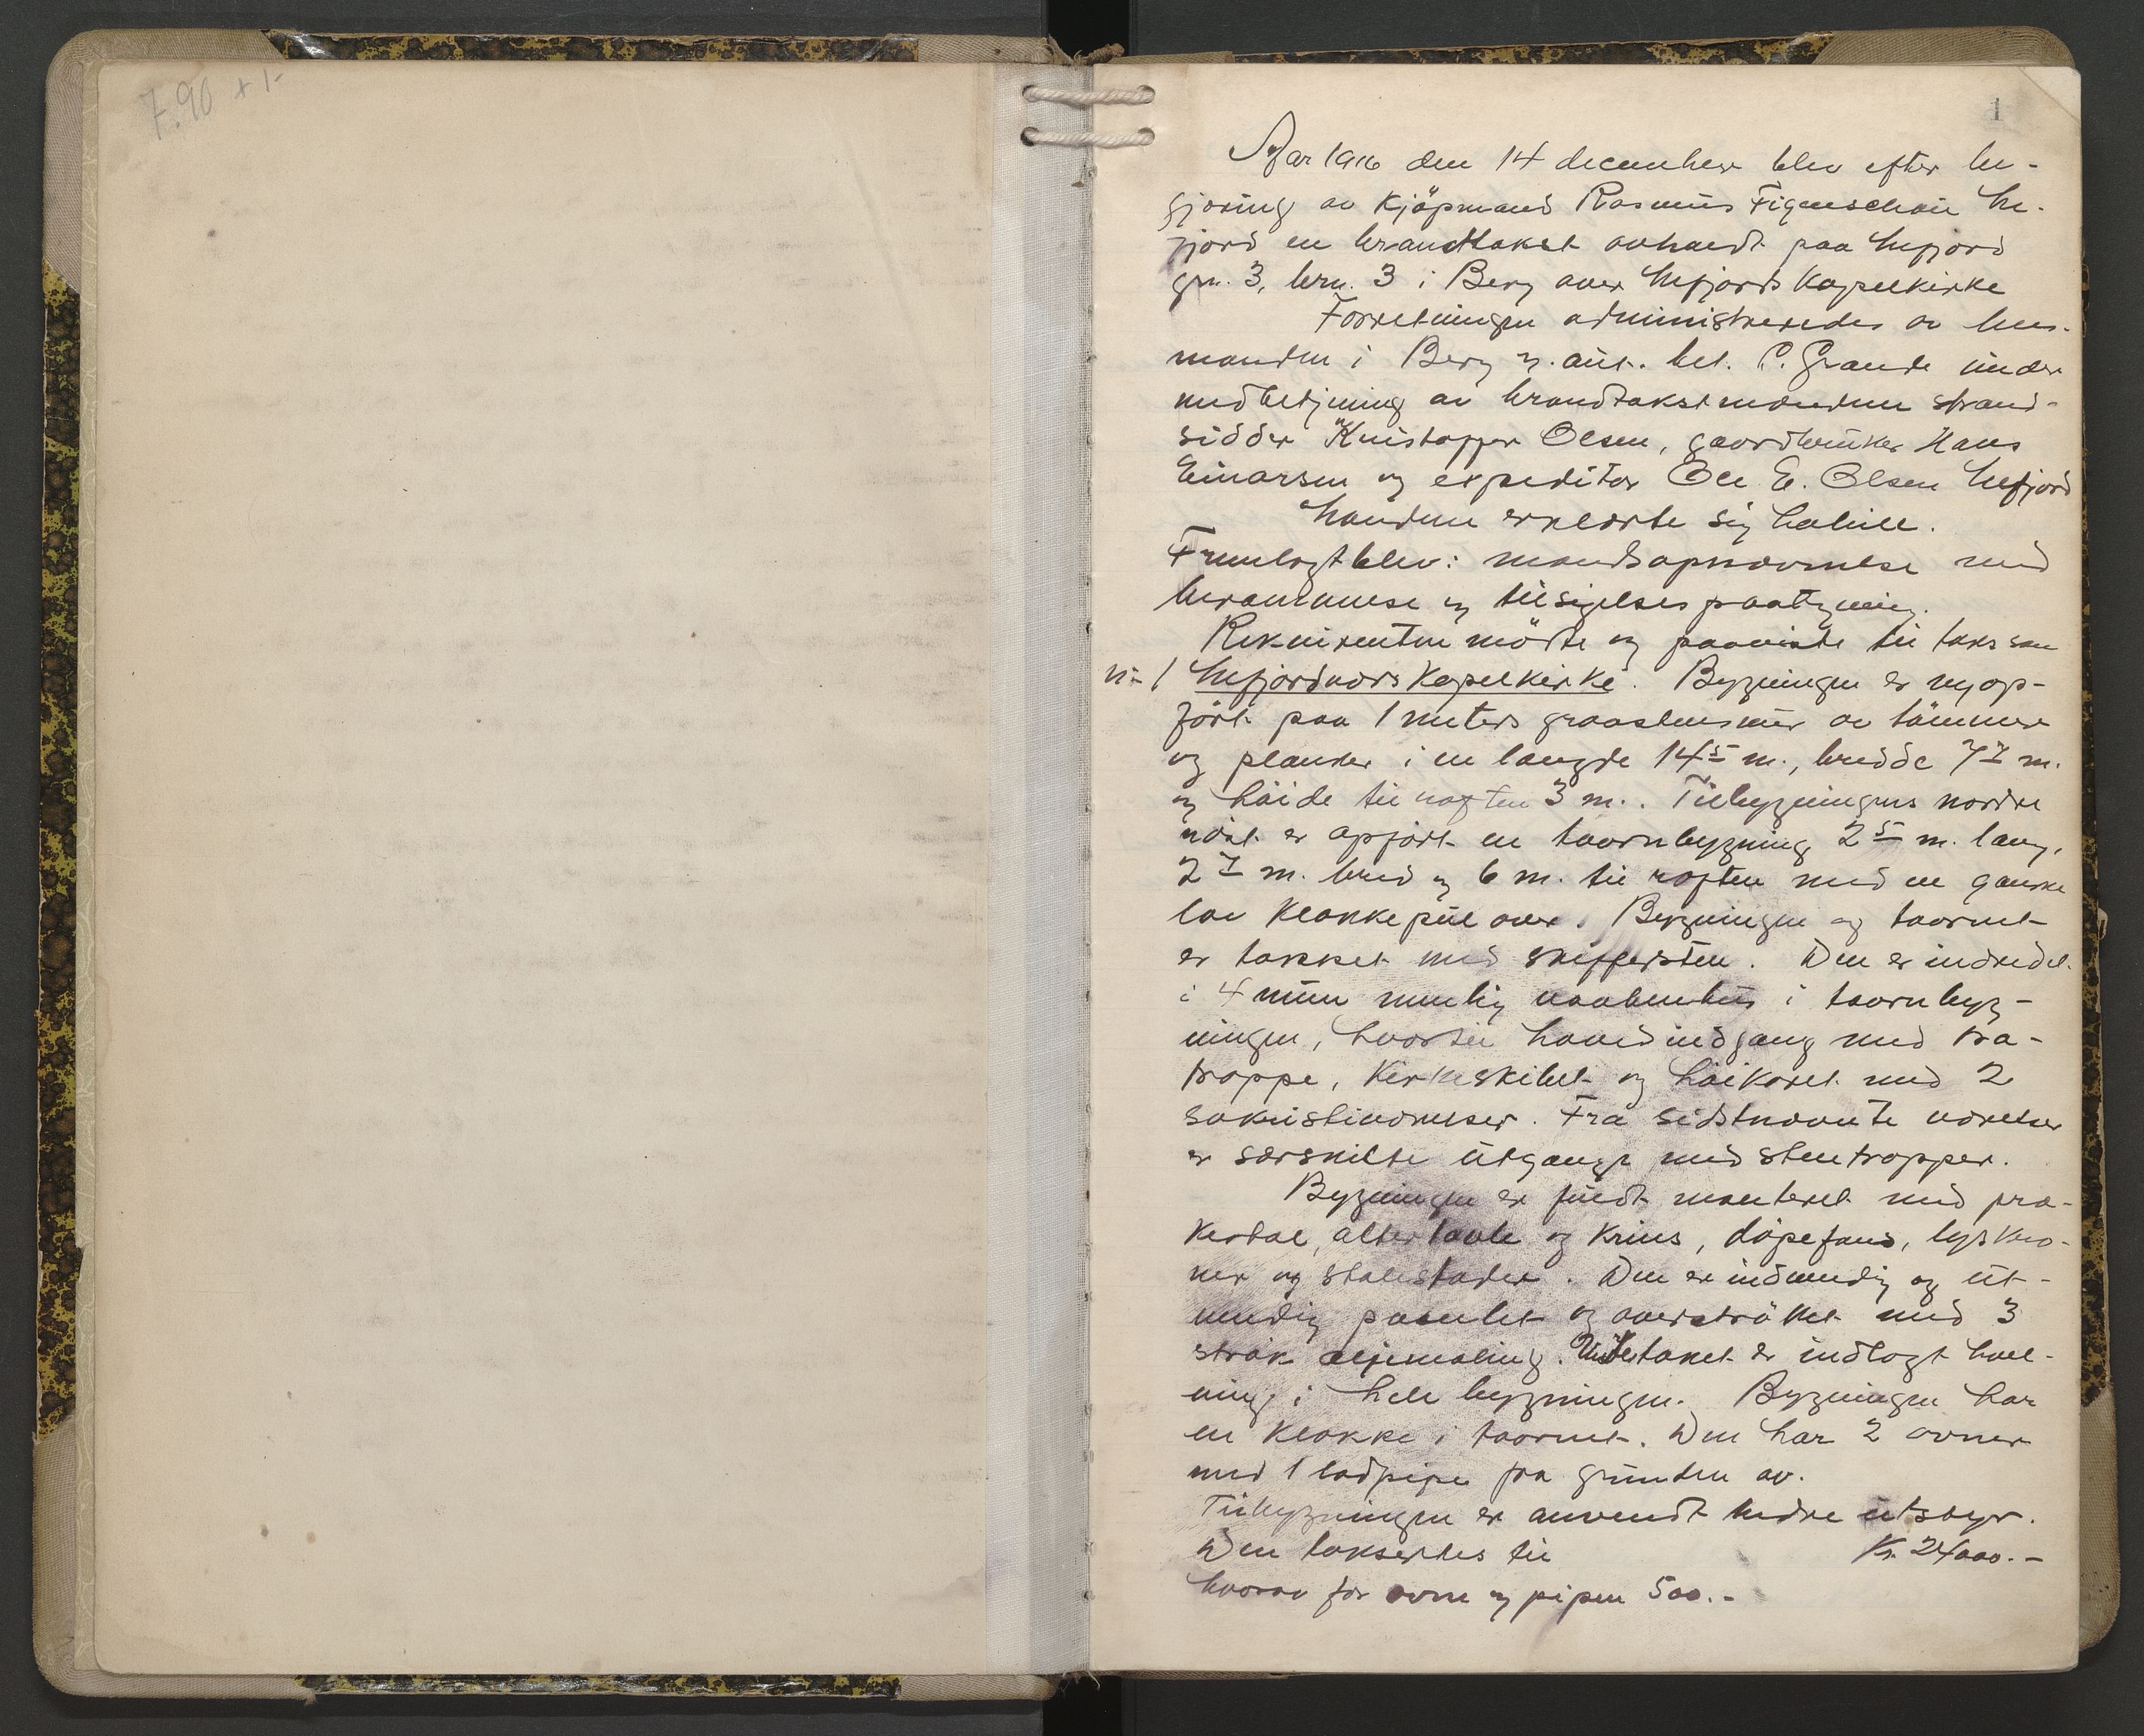 7.90 + 1-
1
Aar 1916 den 14 december blev efter be-
gjæring av Kjøpmand Rasmus Figenschau Me-
fjord en brandtakst avholdt paa Mefjord
grn. 3, brn. 3 i Berg over Mefjords Kapelkirke
Forretningen administreredes av lens-
manden i Berg v. aut. bet. P. Grande under
medbetjening av brandtakstmændene strand-
sidder Kristoffer Olsen, gaardbruker Hans
Einarsen og expeditør Ole E. Olsen Mefjord
Mændene erklærte sig habile.
Fremlagt blev: mandsopnævnelse med
berammelse og tilsigelses paategning.
Rekvirenten møtte og paaviste til takst som
nr. 1 Mefjordværs Kapelkirke. Bygningen er nyop-
ført paa 1 meters graastensmur av tømmer
og planker i en længde 14 5 m., bredde 7 7 m.
og høide til røften 3 m. Til bygningens nordre
røst er opført en taarnbygning 2 5 m. lang,
2 7 m. bred og 6 m. til røften med en ganske
lav Klokkepiil over. Bygningen og taarnet
er tækket med skiffersten. Den er indredet
i 4 rum nemlig vaabenhus i taarnbyg-
ningen, hvortil hovedindgang med træ-
trappe, Kirkeskibet og høikoret med 2
sakristiværelser. Fra sidstnævnte værelser
er særskilte utgange med stentrapper.
Bygningen er fuldt monteret med præ-
kestol, altertavle og Krus, døpefond, lyskro-
ner og stolestader. Den er indvendig og ut-
vendig panelet og overstrøket med 3
strøk oljemaling. Under taket er indlagt hvel-
ving i hele bygningen. Bygningen har
en Klokke i taarnet. Den har 2 ovner
med 1 ladpipe fra grunden av.
Til bygningen er anvendt bedre utstyr.
Den takseredes til Kr. 24000.-
hvorav for ovne og pipen 500.-